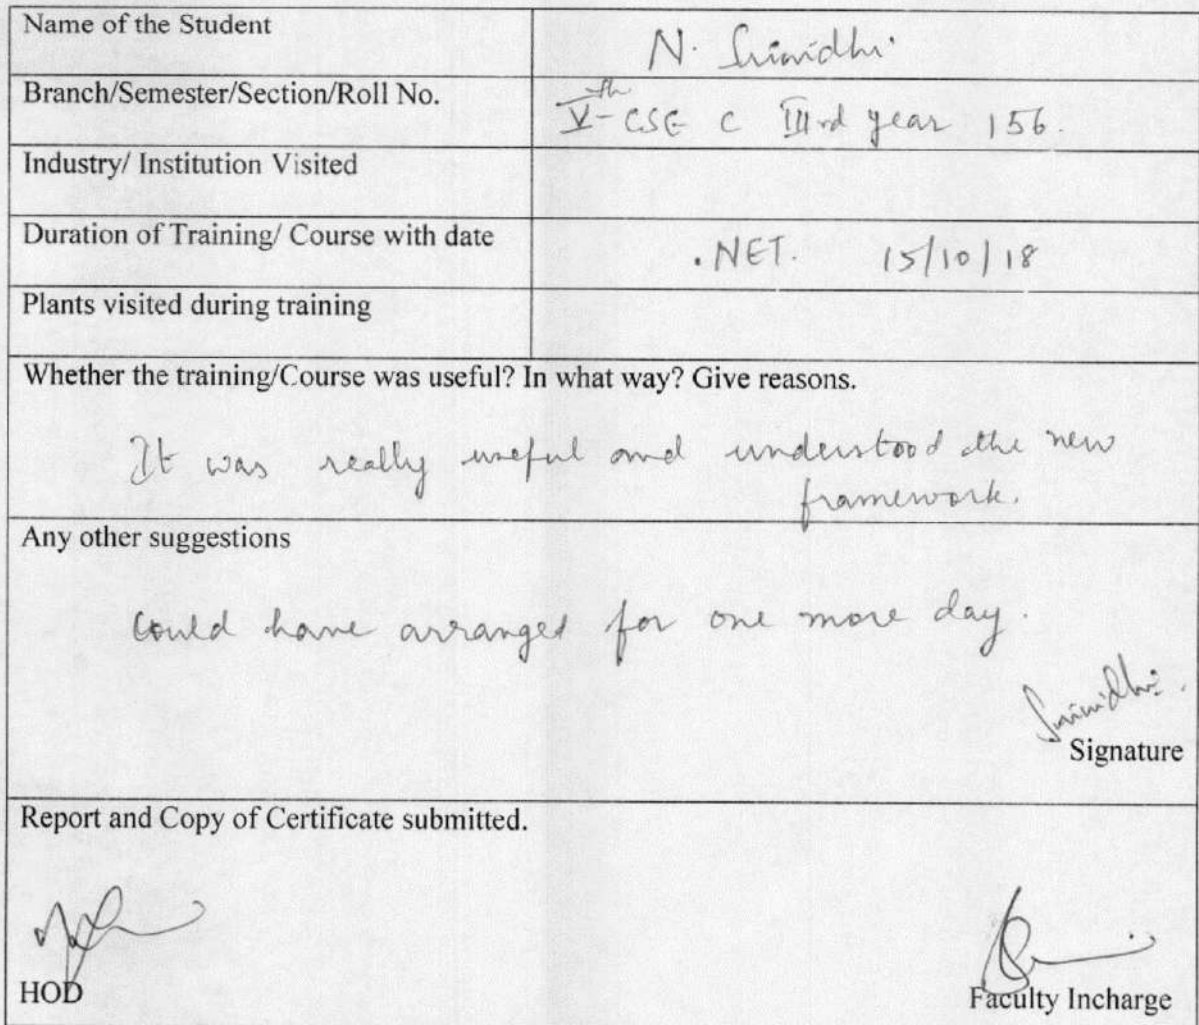 Name of the Student
N. Srinidhi
Branch/Semester/Section/Roll No.
Vth CSE C IIIrd year 156.
Industry/ Institution Visited
Duration of Training/ Course with date
.NET. 15/10/18
Plants visited during training
Whether the training/Course was useful? In what way? Give reasons.
It was really useful and understood the new
framework.
Any other suggestions
Could have arranged for one more day.
Srinidhi.
Signature
Report and Copy of Certificate submitted.
HOD
Faculty Incharge